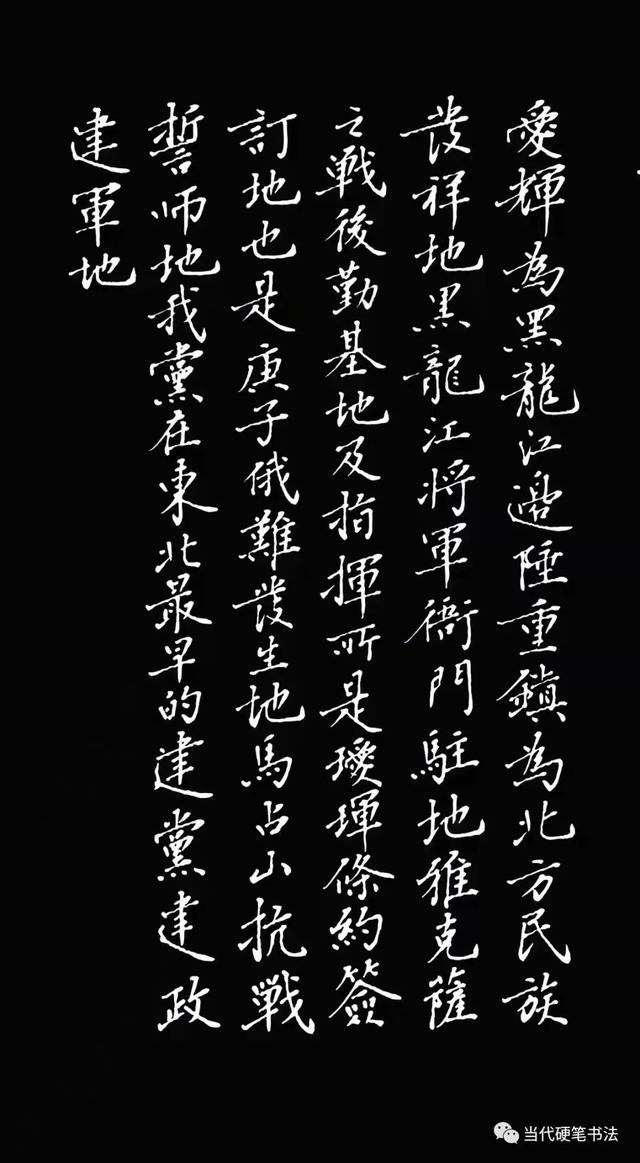 愛輝為黑龍江邊陲重鎮為北方民族
發祥地黑龍江將軍衙門駐地雅克薩
之戰後勤基地及指揮所是璦琿條約簽
訂地也是庚子俄難發生地馬占山抗戰
誓師地我黨在東北最早的建黨建政
建軍地
当代硬笔书法